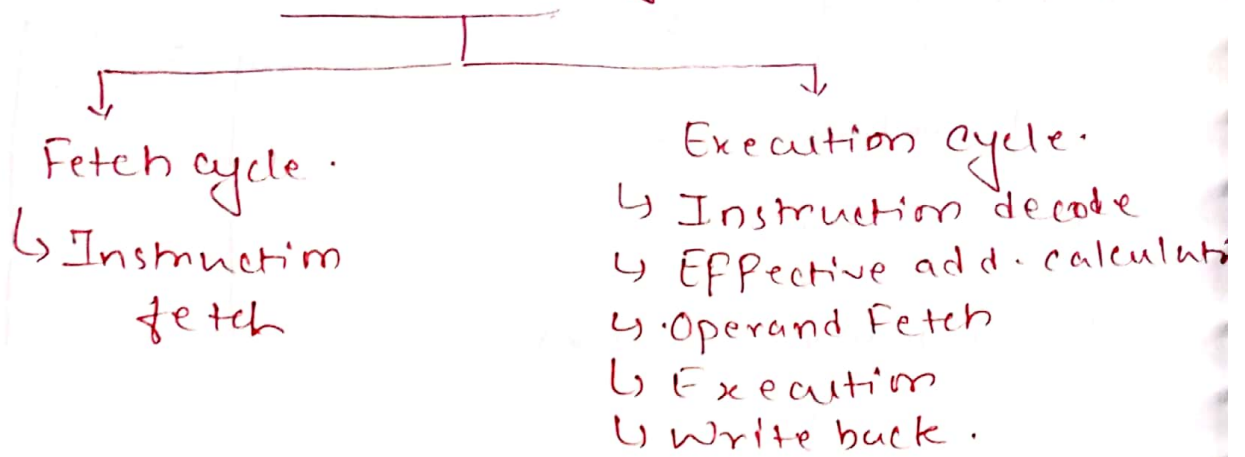 Fetch cycle.
↳ Instruction
fetch
Execution cycle.
↳ Instruction decode
↳ Effective add. calculati
↳ Operand Fetch
↳ Execution
↳ Write back.